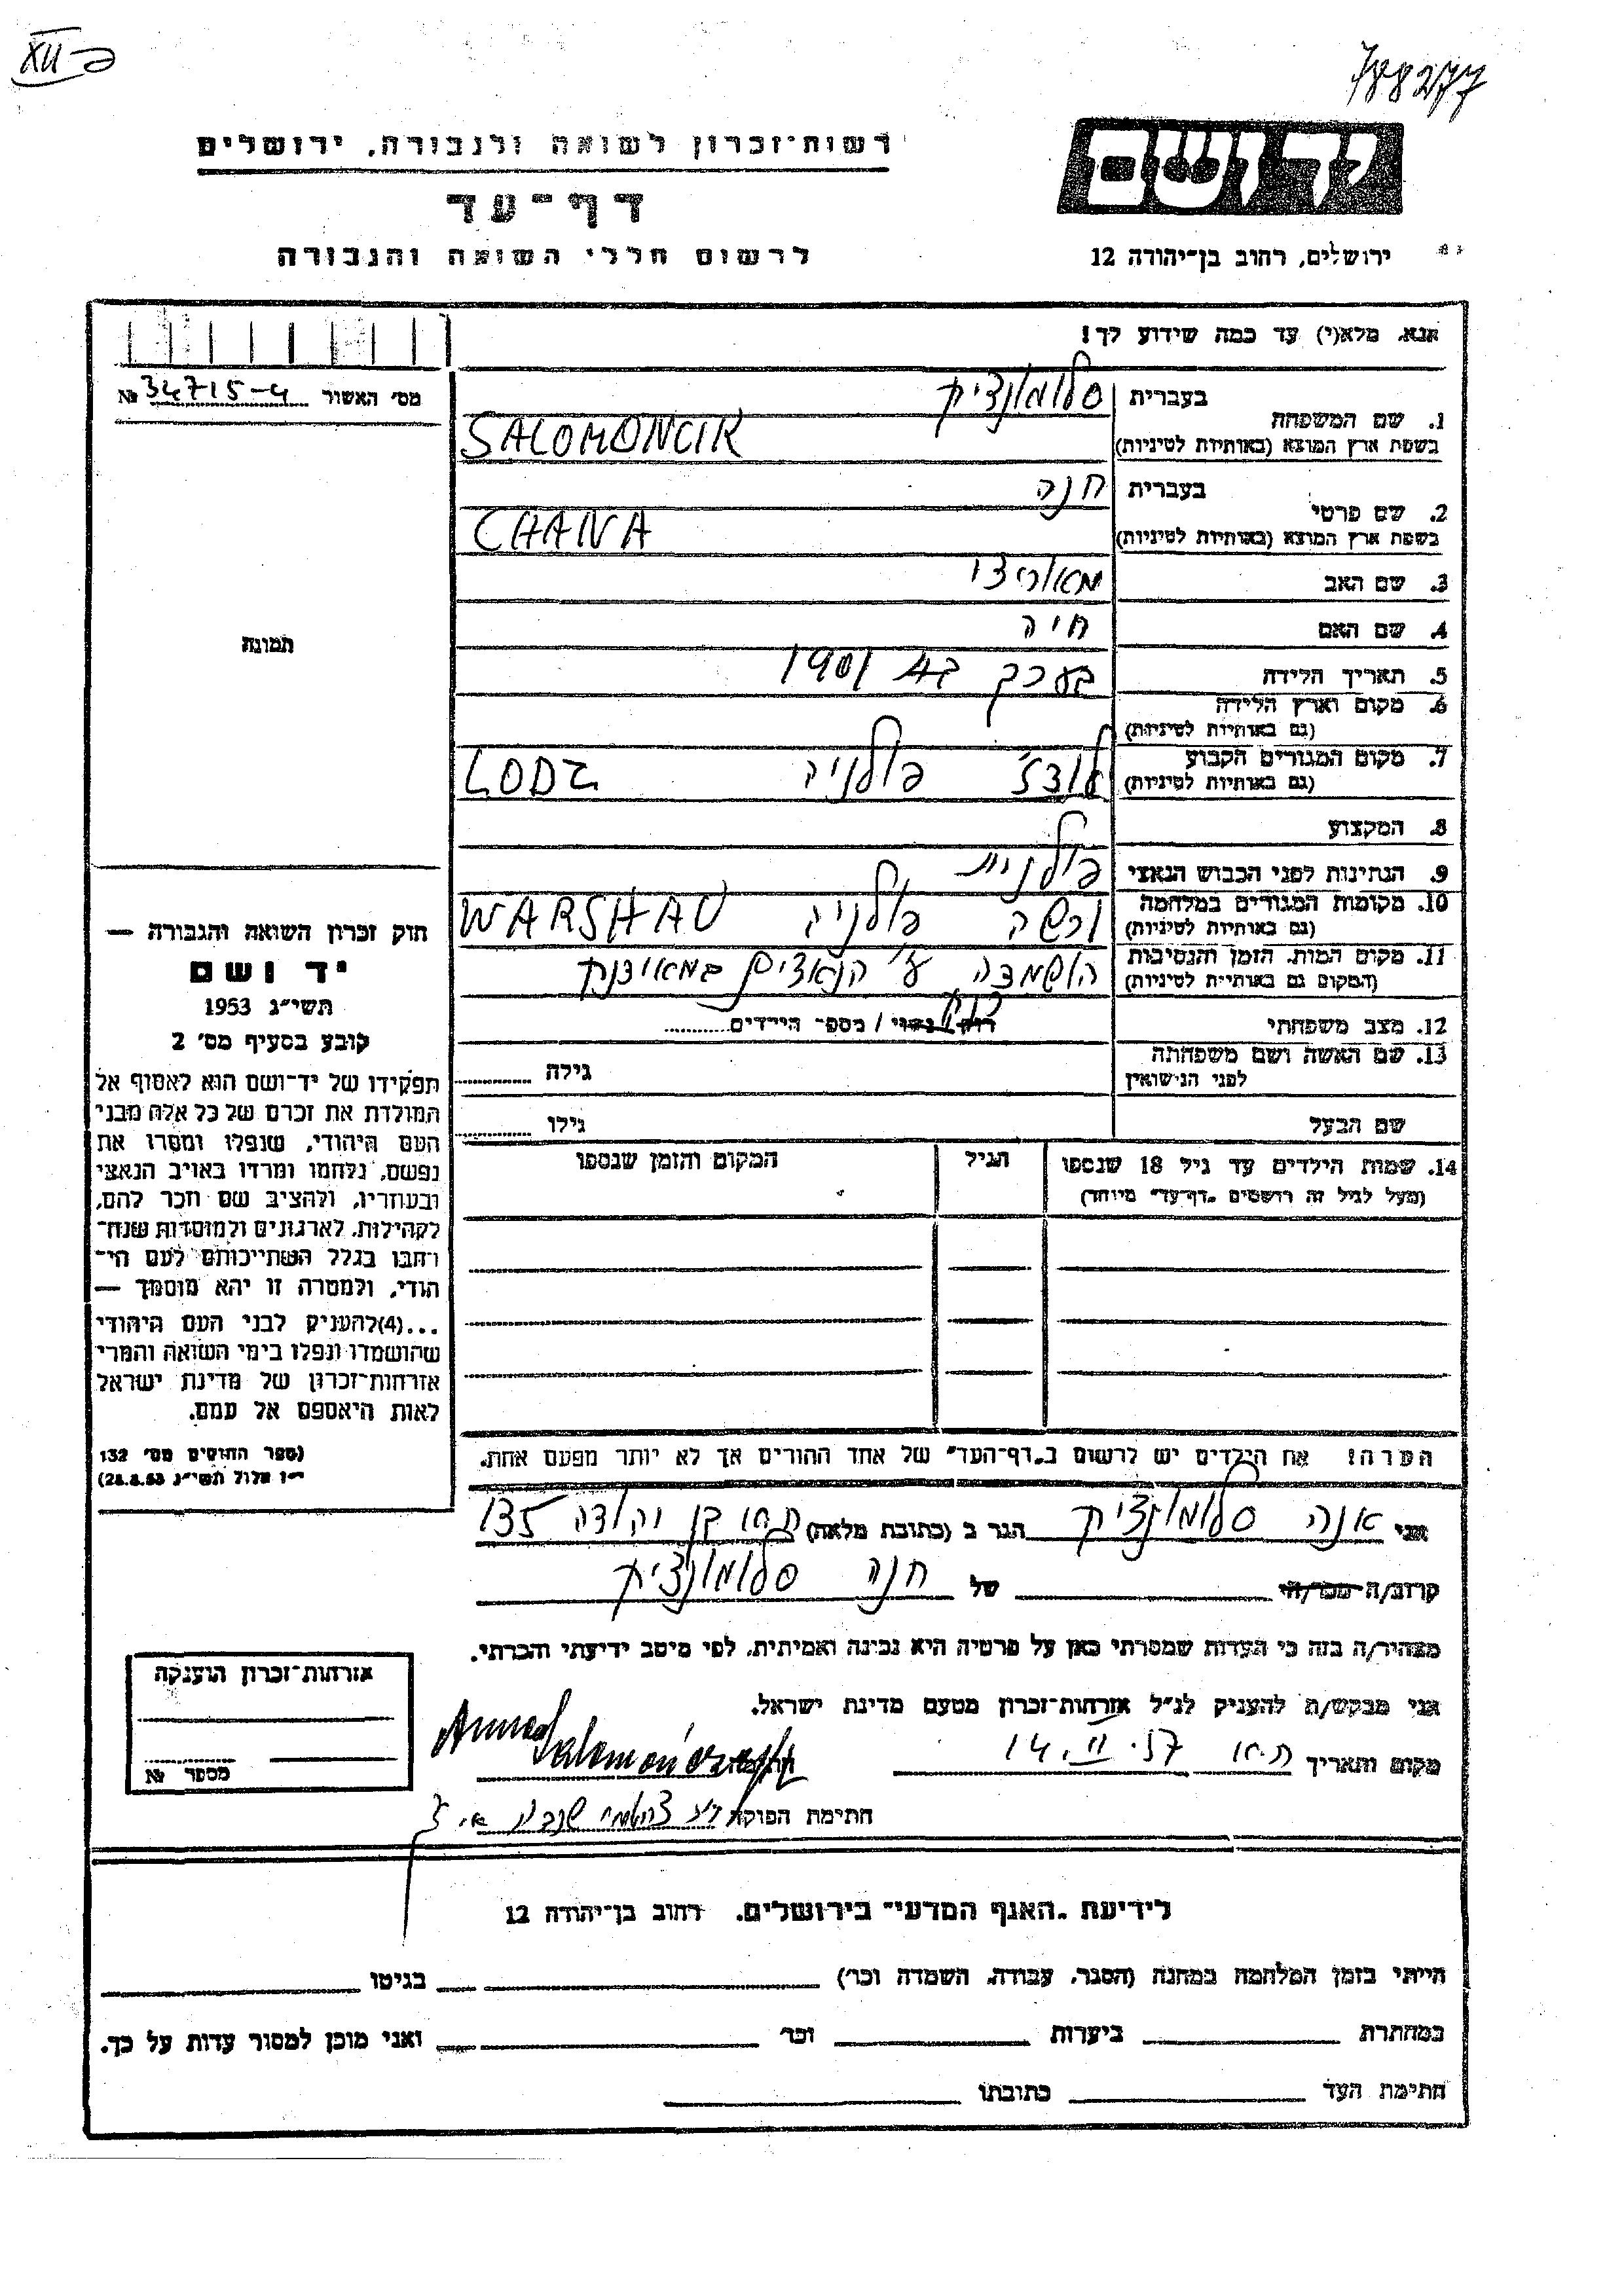 XII-פ
788277
יד ושם
רשות־זכרון לשואה ולגבורה, ירושלים
דף־עד
לרשום חללי השואה והגבורה
ירושלים, רחוב בן־יהודה 12
אנא, מלא(י) עד כמה שידוע לך!
מס׳ האשור № 34715-4
1. שם המשפחה בעברית סלומונציק
בשפת ארץ המוצא (באותיות לטיניות) SALOMONCIK
2. שם פרטי בעברית חנה
בשפת ארץ המוצא (באותיות לטיניות) CHANA
3. שם האב מאוריצי
4. שם האם חיה
5. תאריך הלידה בערך ב 1901
6. מקום וארץ הלידה
(גם באותיות לטיניות)
7. מקום המגורים הקבוע לודז׳ פולניה LODZ
(גם באותיות לטיניות)
8. המקצוע
9. הנתינות לפני הכבוש הנאצי פולנית
10. מקומות המגורים במלחמה ורשה פולניה WARSHAU
(גם באותיות לטיניות)
11. מקום המות, הזמן והנסיבות הושמדה ע״י הנאצים
(המקום גם באותיות לטיניות)
12. מצב משפחתי רווק/נשוי / מספר הילדים
13. שם האשה ושם משפחתה גילה
לפני הנישואין
שם הבעל גילו
14. שמות הילדים עד גיל 18 שנספו הגיל המקום והזמן שנספו
(מעל לגיל זה רושמים „דף־עד״ מיוחד)
הערה! את הילדים יש לרשום ב„דף־העד״ של אחד ההורים אך לא יותר מפעם אחת.
תמונה
חוק זכרון השואה והגבורה —
יד ושם
תשי״ג 1953
קובע בסעיף מס׳ 2
תפקידו של יד־ושם הוא לאסוף אל
המולדת את זכרם של כל אלה מבני
העם היהודי, שנפלו ומסרו את
נפשם, נלחמו ומרדו באויב הנאצי
ובעוזריו, ולהציב שם וזכר להם,
לקהילות, לארגונים ולמוסדות שנח־
רבו בגלל השתייכותם לעם הי־
הודי, ולמטרה זו יהא מוסמך —
...(4)להעניק לבני העם היהודי
שהושמדו ונפלו בימי השואה והמרי
אזרחות־זכרון של מדינת ישראל
לאות היאספם אל עמם.
(ספר החוקים מס׳ 132
י״ז אלול תשי״ג 28.8.53)
אני אנה סלומונציק הגר ב (כתובת מלאה) ת״א בן יהודה 135
קרוב/ה מכר/ה של חנה סלומונציק
מצהיר/ה בזה כי העדות שמסרתי כאן על פרטיה היא נכונה ואמיתית, לפי מיטב ידיעתי והכרתי.
אני מבקש/ת להעניק לנ״ל אזרחות־זכרון מטעם מדינת ישראל.
מקום ותאריך ת״א 14.II.57 חתימה Anna
חתימת הפוקד
אזרחות־זכרון הוענקה
מספר №
לידיעת „האגף המדעי״ בירושלים, רחוב בן־יהודה 12
הייתי בזמן המלחמה במחנה (הסגר, עבודה, השמדה וכו׳) בגיטו
במחתרת ביערות וכו׳ ואני מוכן למסור עדות על כך.
חתימת העד כתובתו